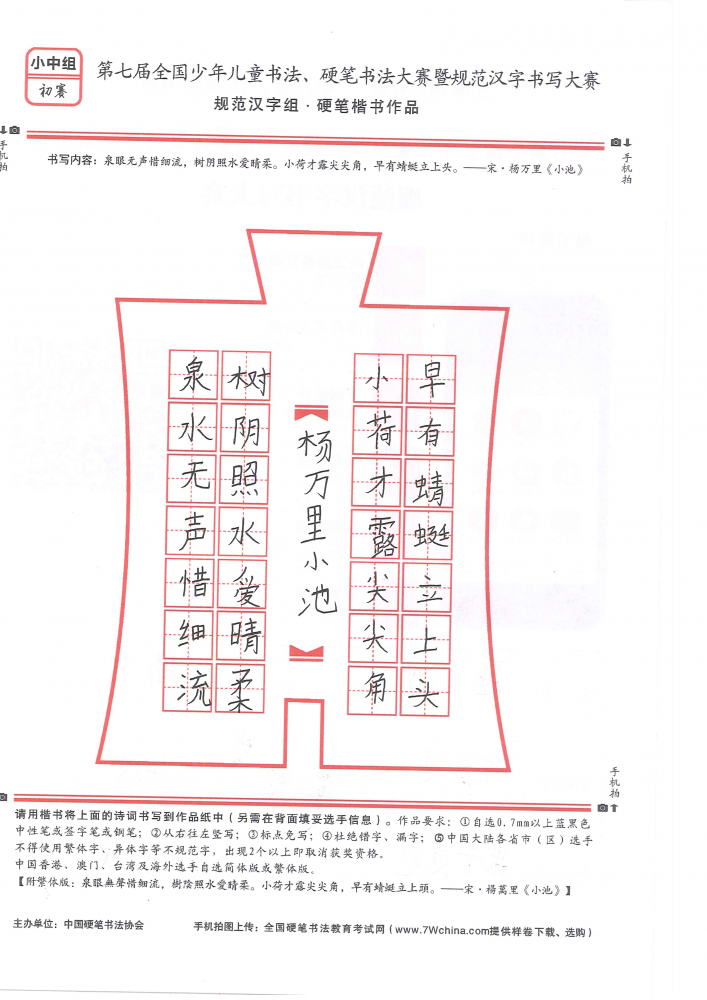 小中组
初赛
第七届全国少年儿童书法、硬笔书法大赛暨规范汉字书写大赛
规范汉字组·硬笔楷书作品
手机拍
手机拍
书写内容：泉眼无声惜细流，树阴照水爱晴柔。小荷才露尖尖角，早有蜻蜓立上头。——宋·杨万里《小池》
泉水无声惜细流
树阴照水爱晴柔
杨万里小池
小荷才露尖尖角
早有蜻蜓立上头
手机拍
请用楷书将上面的诗词书写到作品纸中（另需在背面填妥选手信息）。作品要求：①自选0.7mm以上蓝黑色
中性笔或签字笔或钢笔；②从右往左竖写；③标点免写；④杜绝错字、漏字；⑤中国大陆各省市（区）选手
不得使用繁体字、异体字等不规范字，出现2个以上即取消获奖资格。
中国香港、澳门、台湾及海外选手自选简体版或繁体版。
【附繁体版：泉眼無聲惜细流，樹陰照水爱晴柔。小荷才露尖尖角，早有蜻蜓立上頭。——宋·楊萬里《小池》】
主办单位：中国硬笔书法协会
手机拍图上传：全国硬笔书法教育考试网（www.7Wchina.com提供样卷下载、选购）